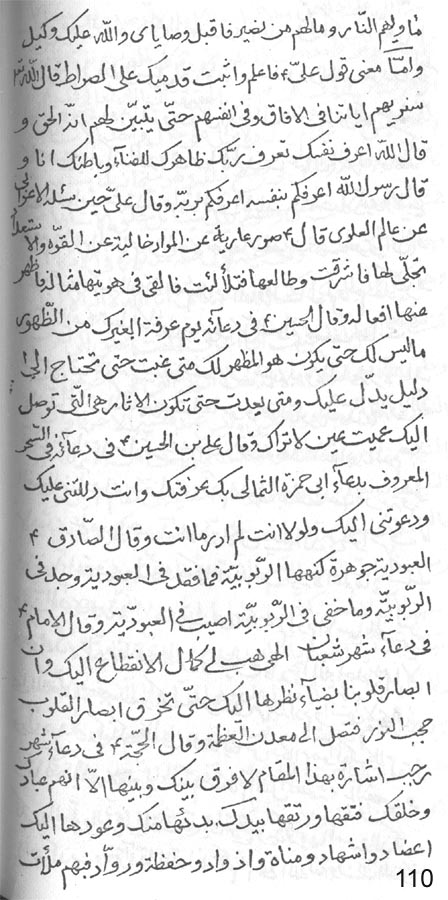 مأويهم النّار و مالهم من نصير فاقبل وصاياى والله عليك وكيل
وامّا معنى قول علىّ ع فاعلم واثبت قدميك على الصراط قال الله تع
سنريهم اياتنا فى الافاق وفى انفسهم حتّى يتبيّن لهم انّه الحق و
قال الله اعرف نفسك تعرف ربّك ظاهرك للفنآء وباطنك انا و
قال رسول الله اعرفكم بنفسه اعرفكم بربّه وقال علىّ حين سئله الاعرابى
عن عالم العلوى قال ع صور عارية عن المواد خالية عن القوّة والاستعداد
تجلّى لها فاشرقت وطالعها فتلألئت فالقى فى هويّتها مثاله فاظهر
عنها افعاله وقال الحسين ع فى دعآئه يوم عرفة الغيرك من الظّهور
ماليس لك حتى يكون هو المظهر لك متى غبت حتى تحتاج الى
دليل يدلّ عليك ومتى بعدت حتى تكون الاثار هى الّتى توصل
اليك عميت عين لاتراك وقال على بن الحسين ع فى دعآئه فى السّحر
المعروف بدعآء ابى حمزة الثمالى بك عرفتك وانت دللتنى عليك
ودعوتنى اليك ولولا انت لم ادر ما انت وقال الصّادق ع
العبودية جوهرة كنهها الرّبوبيّة فما فقد فى العبودية وجد فى
الرّبوبيّة وما خفى فى الرّبوبيّة اصيب فى العبوديّة وقال الامام ع
فى دعآء شهر شعبان الهى هب لى كمال الانقطاع اليك وان
ابصار قلوبنا بضيآء نظرها اليك حتّى تخرق ابصار القلوب
حجب النور فتصل الى معدن العظمة وقال الحجّة ع فى دعآء شهر
رجب اشارة بهذا المقام لافرق بينك وبينها الّا انهم عبادك
وخلقك فتقها ورتقها بيدك بدئها منك وعودها اليك
اعضاد واشهاد ومناة واذواد وحفظة وروّاد فبهم ملأت
110